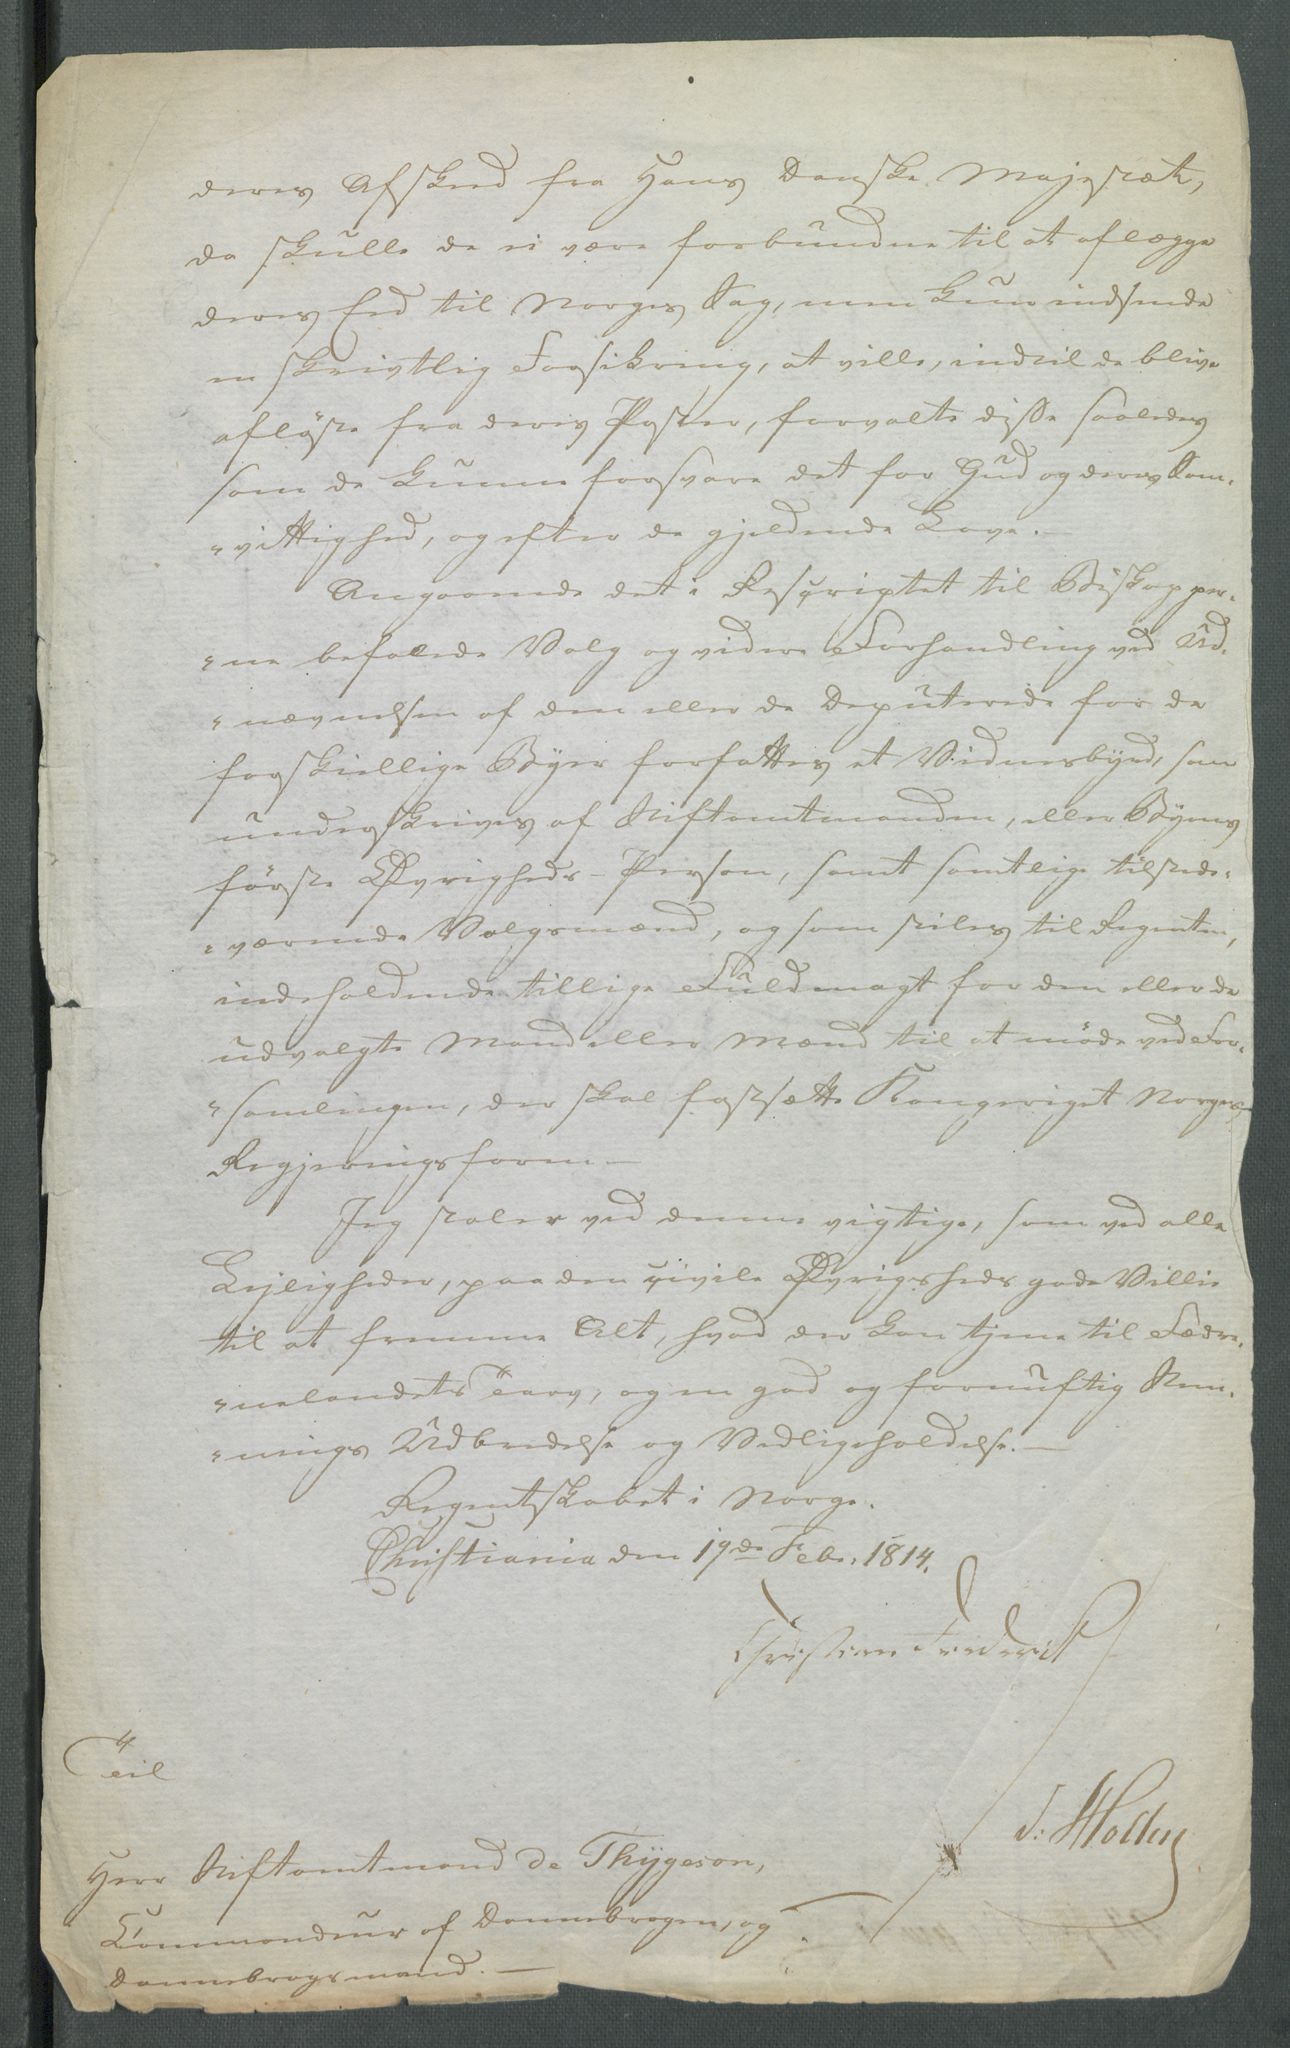 deres Afskeed fra Hans Danske Majestæt,
da skulle de ei være forbundne til at aflægge
deres Eed til Norges Sag, men kun indsende
en skrivtlig Forsikring, at ville, indtil de blive
aflöste fra deres Poster, forvalte disse saaledes
som de kunne forsvare det for Gud og deres Sam-
"vittighed, og efter de gjeldende Love.—
Angaaende det i Rescriptet til Biskopper-
"ne befalede Valg og videre Forhandling ved Ud-
"nævnelsen af den eller de Deputerede for de
forskiellige Byer forfattes et Vidnesbyrd, som
underskrives af Stiftamtmanden, eller Byens
förste Øvrigheds-Person, samt samtlige tilstede-
"værende Valgmænd, og som stiles til Regenten,
indeholdende tillige Fuldmagt for den eller de
udvalgte Mand eller Mænd til at möde ved For-
"samlingen, der skal fastsætte Kongeriget Norges
Regjeringsform—
Jeg stoler ved denne vigtige, som ved alle
Lejligheder, paa den civile Øvrigheds gode Villie
til at fremme Alt, hvad der kan tjene til Fædre-
"nelandets Tarv, og en god og fornuftig Stem-
"nings Udbredelse og Vedligeholdelse.—
Regentskabet i Norge.
Christiania den 19de Feb. 1814.
Christian Frederik
Til
J. Holten
Herr Stiftamtmand de Thygeson,
Commandeur af Dannebrogen, og
Dannebrogsmand.—